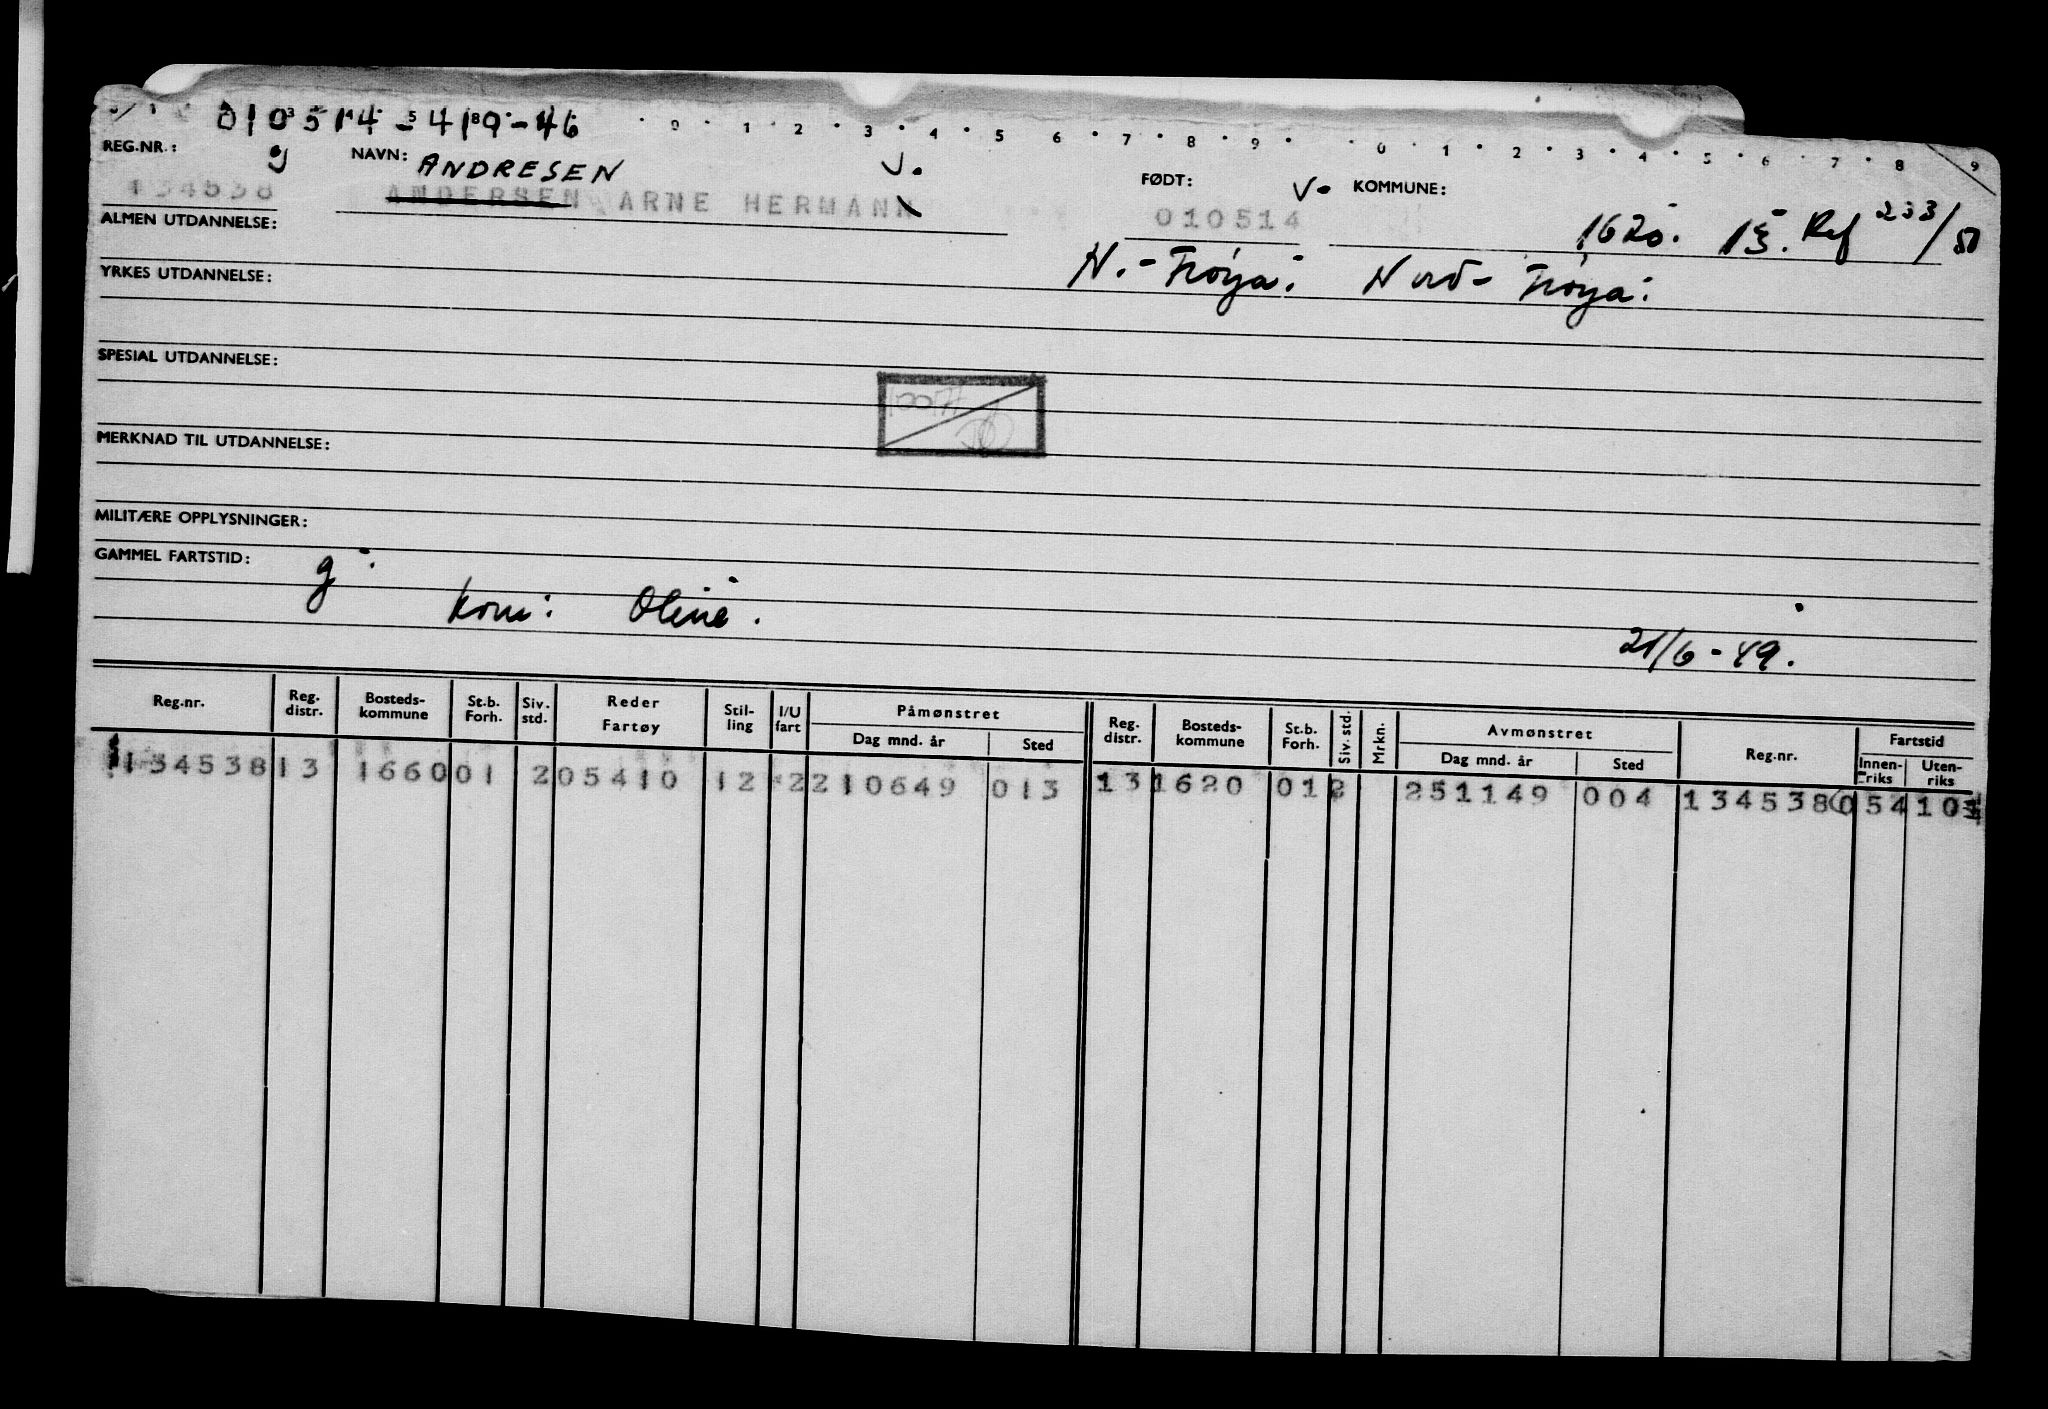 010514-4189-46
0 1 2 3 4 5 6 7 8 9 0 1 2 3 4 5 6 7 8 9
REG.NR.: g NAVN: ANDRESEN V. FØDT: V. KOMMUNE:
134538 ANDERSEN ARNE HERMANN 010514 1620. Ref 233/50
ALMEN UTDANNELSE: N.-Frøya. Nord-Frøya.
YRKES UTDANNELSE:
SPESIAL UTDANNELSE:
MERKNAD TIL UTDANNELSE:
MILITÆRE OPPLYSNINGER:
GAMMEL FARTSTID: g
kone: Oline. 21/6-49.
Reg.nr. Reg. distr. Bosteds-kommune St.b. Forh. Siv. std. Reder Fartøy Stil-ling I/U fart Påmønstret Dag mnd. år Sted Reg. distr. Bosteds-kommune St.b. Forh. Siv. std. Mrkn. Avmønstret Dag mnd. år Sted Reg.nr. Fartstid Innen-riks Uten-riks
134538 13 1660 01 2 05410 12 2 210649 013 13 1620 01 2 251149 004 134538 054 101